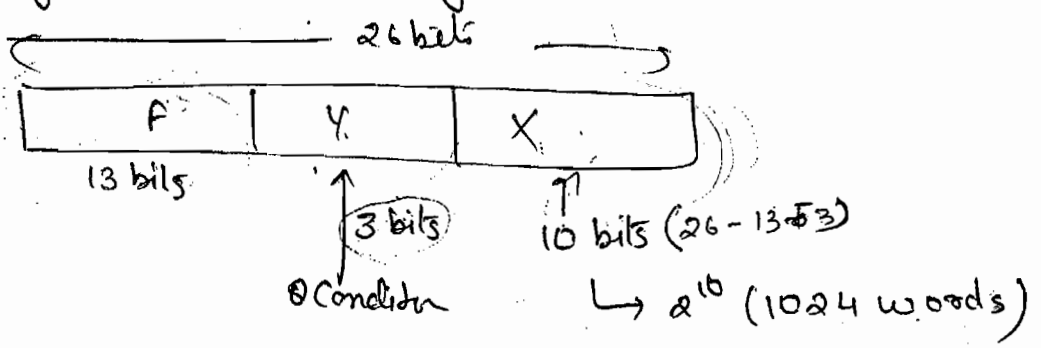 26 bits
F Y X
13 bits
3 bits 10 bits (26-13-3)
Condition → 2^10 (1024 words)